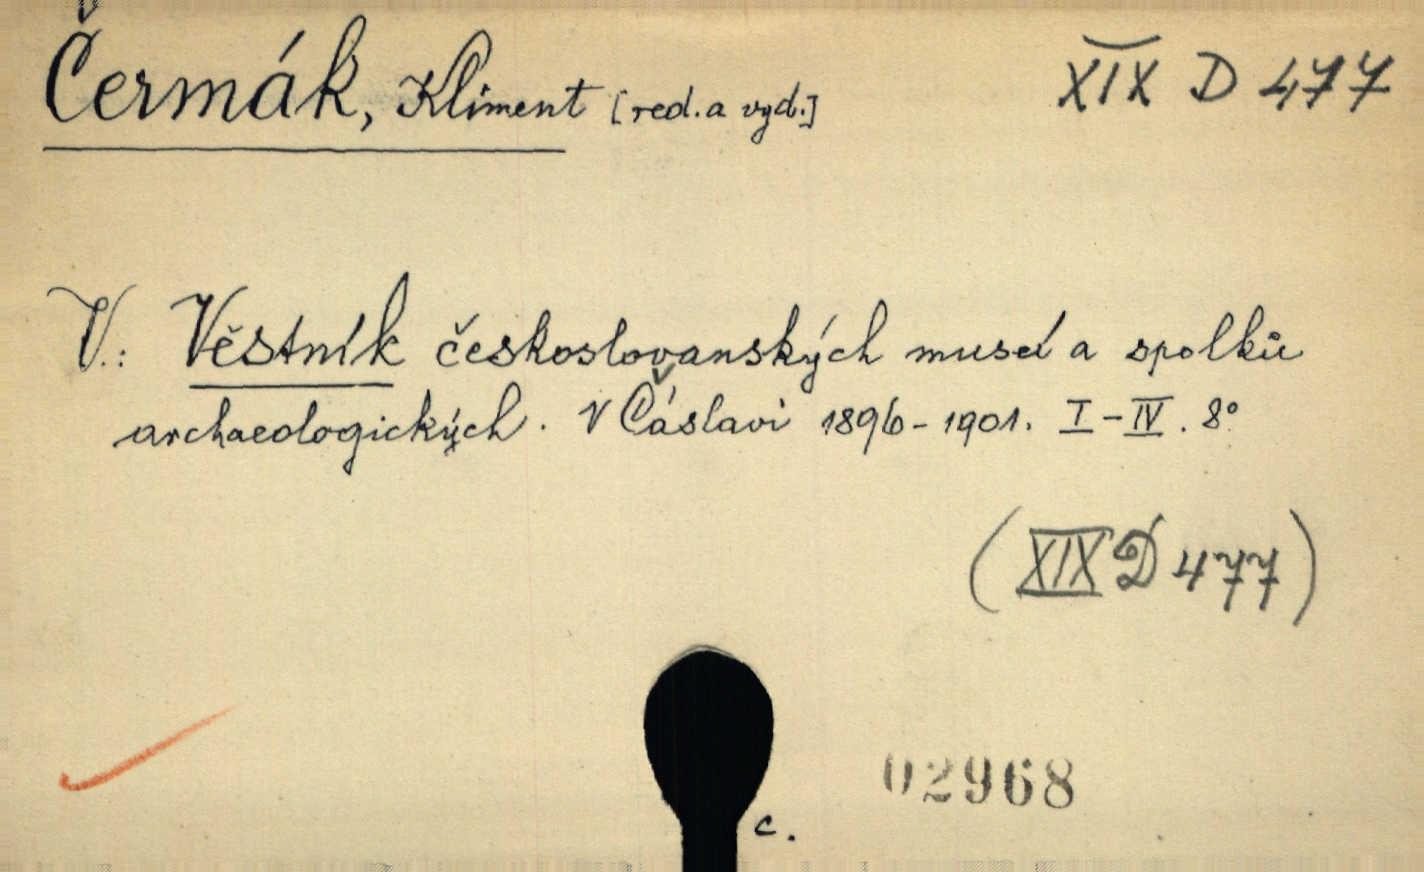 Čermák, Kliment [red. a vyd.] XIX D 477
V.: Věstník českoslovanských museí a spolků
archaeologických. V Čáslavi 1896-1901. I-IV. 8°
(XIX D 477)
02968
c.